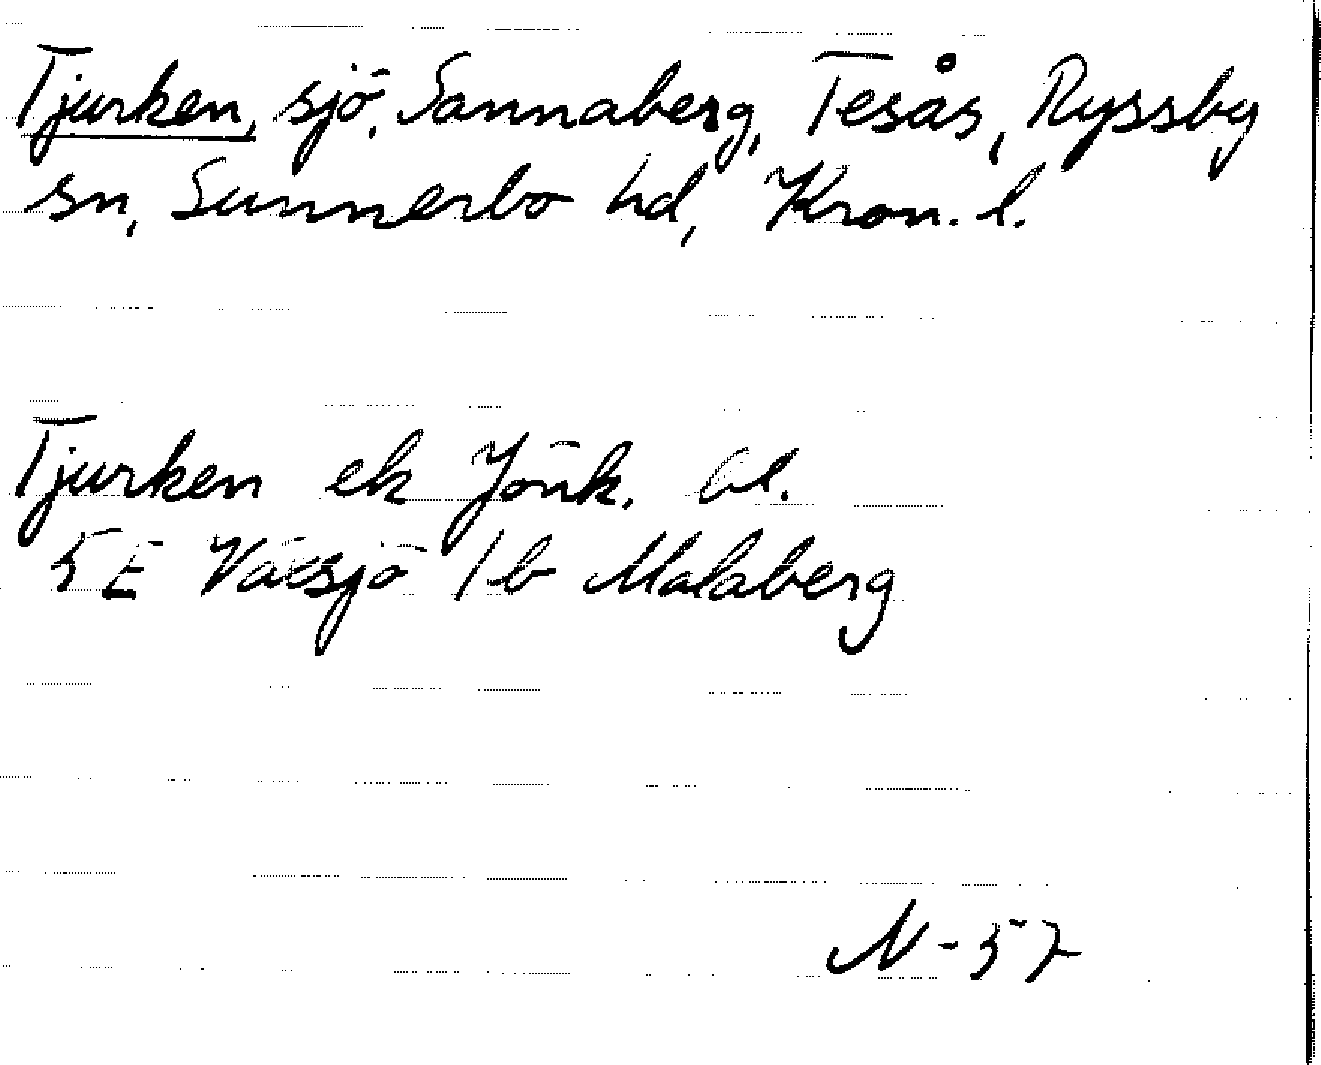 Tjurken, sjö, Sannaberg, Tesås, Ryssby
sn, Sunnerbo hd, Kron. l.
Tjurken ek Jönk. Bl.
5 E Växsjö 1 b Malaberg
N-57